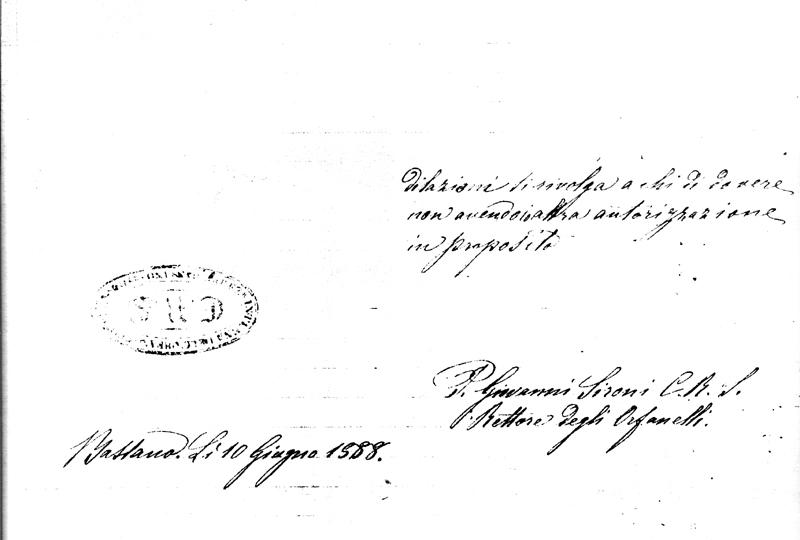 dilazioni si rivolga a chi di dovere
non avendo io altra autorizzazione
in proposito
C R S
P. Giovanni Sironi C. R. S.
Rettore degli Orfanelli.
Bassano. Li 10 Giugno 1888.